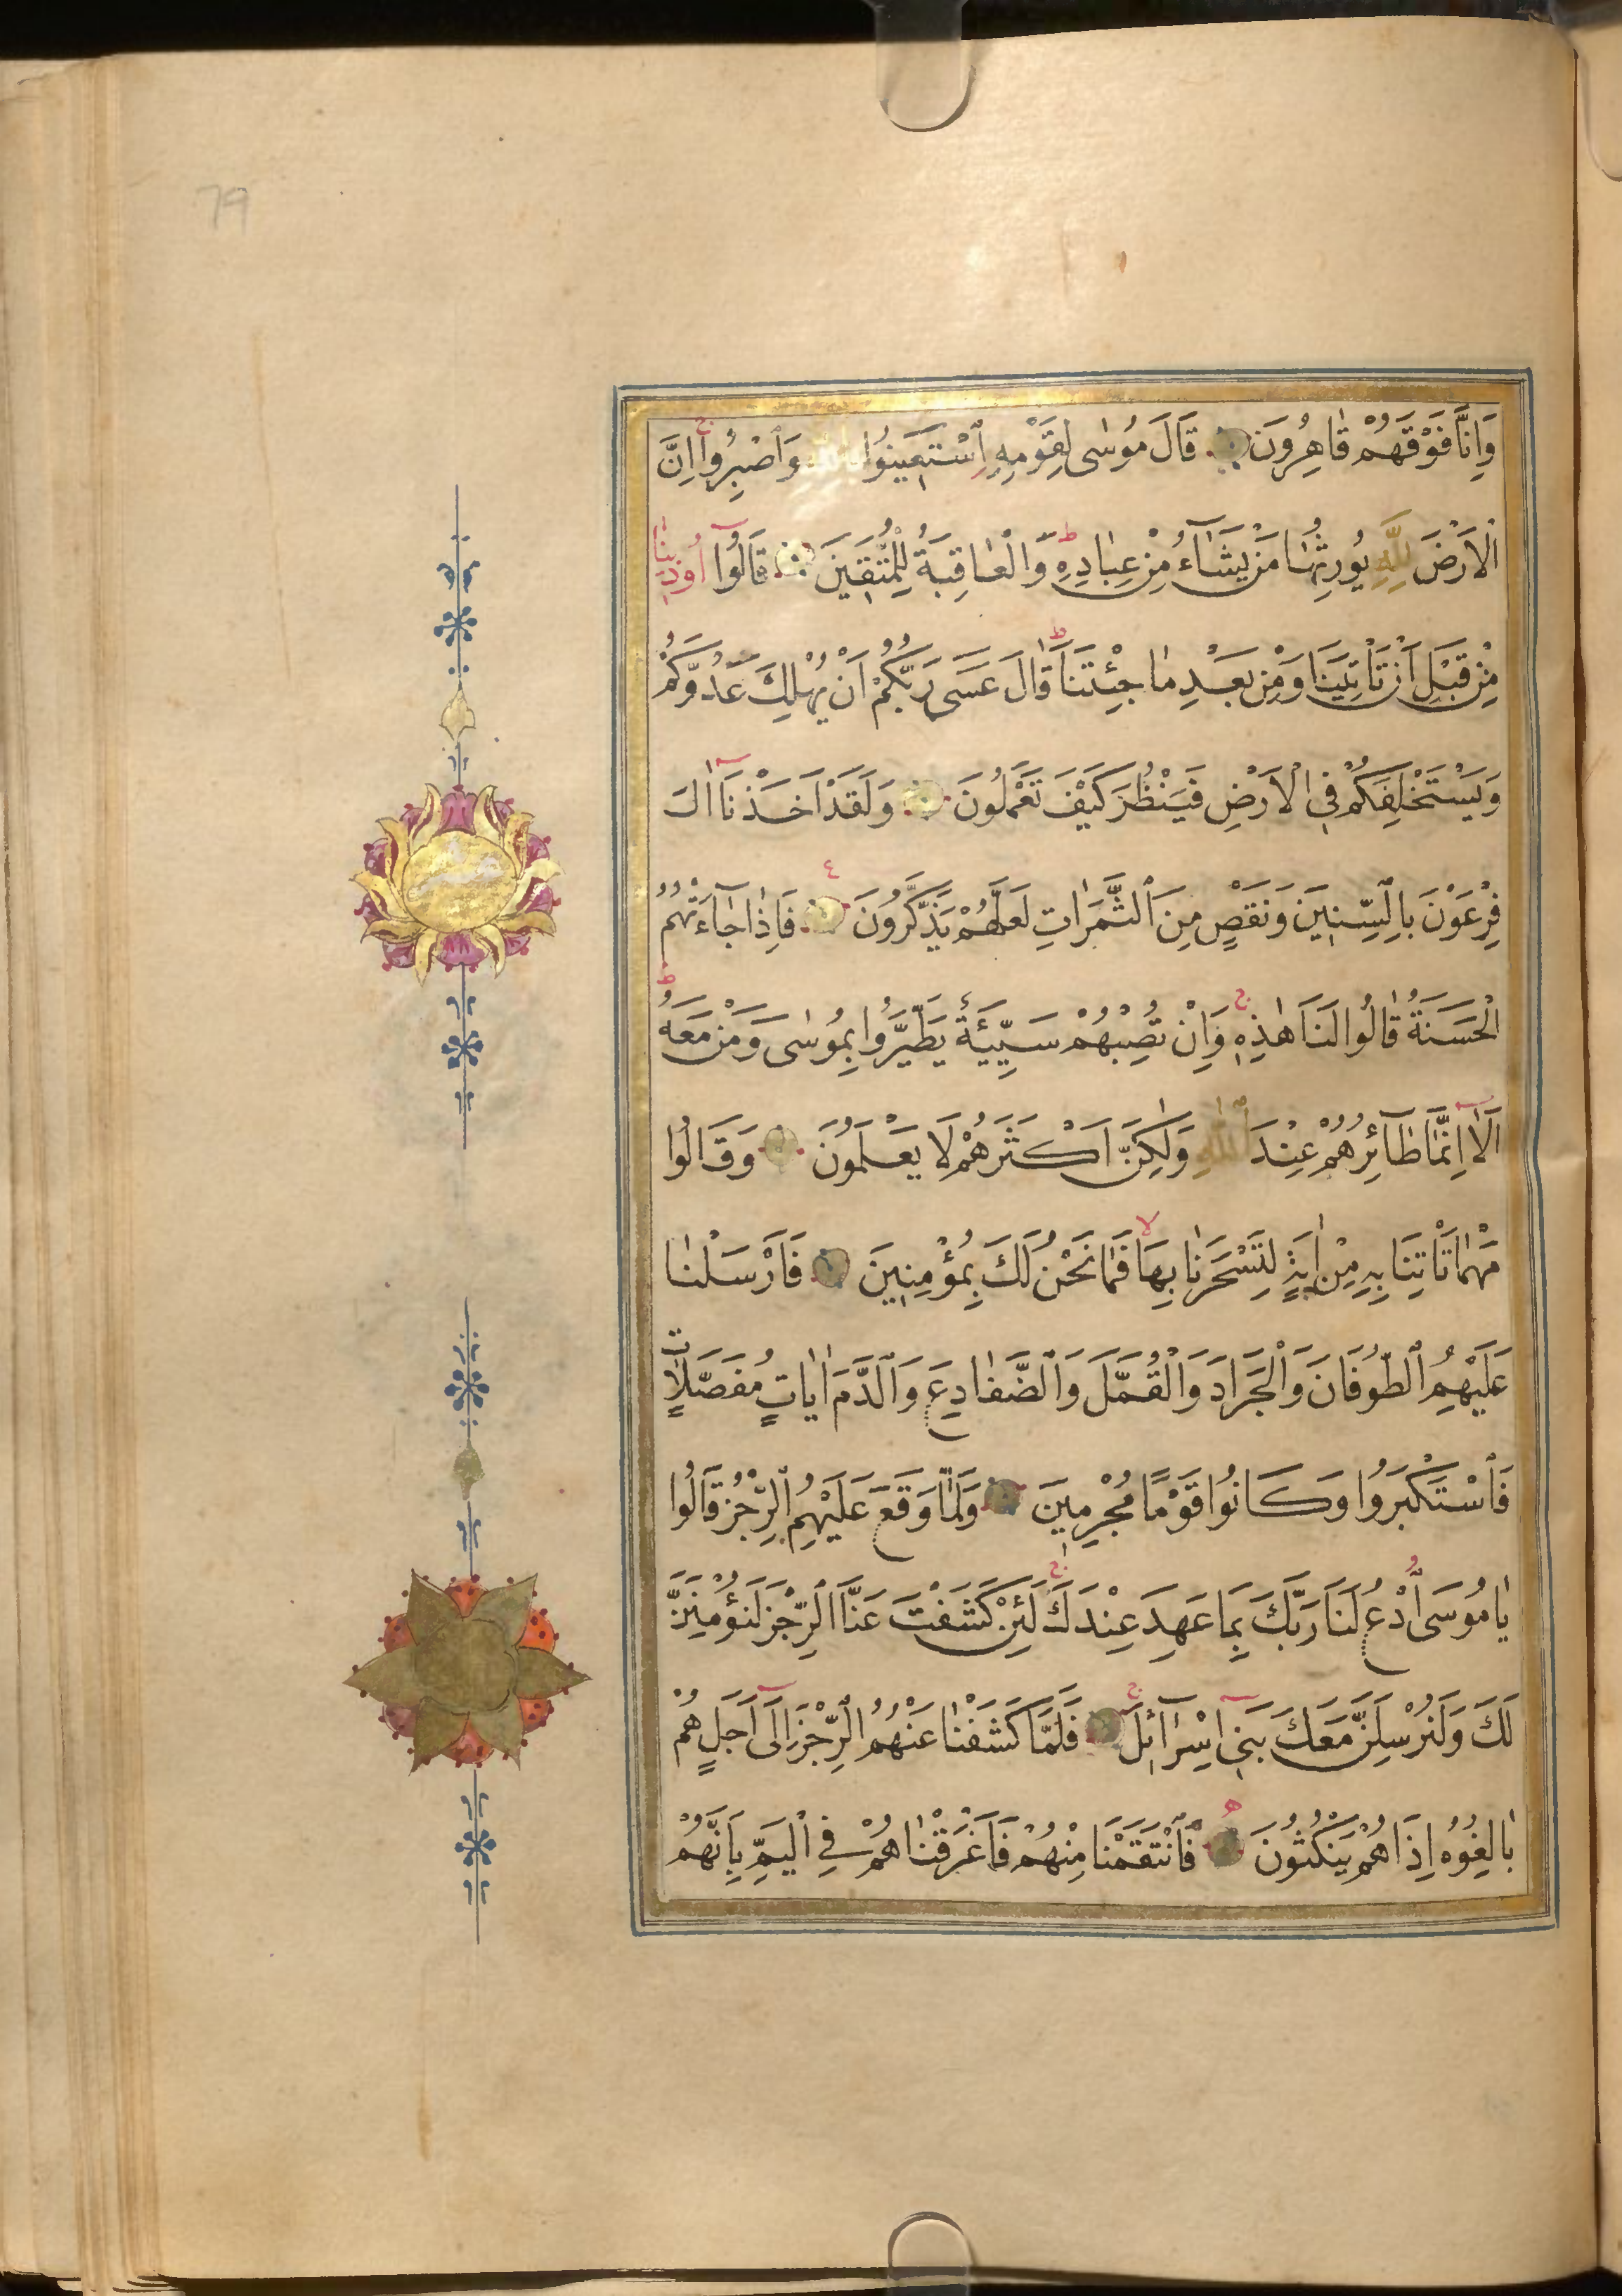 79
وَاِنَّا فَوْقَهُمْ قَاهِرُونَ قَالَ مُوسٰى لِقَوْمِهِ ٱسْتَعِينُوا بِاللّٰهِ وَٱصْبِرُوا اِنَّ
الْاَرْضَ لِلّٰهِ يُورِثُهَا مَنْ يَشَآءُ مِنْ عِبَادِهِ وَالْعَاقِبَةُ لِلْمُتَّقِينَ قَالُوٓا اُوذِينَا
مِنْ قَبْلِ اَنْ تَاْتِيَنَا وَمِنْ بَعْدِ مَا جِئْتَنَا قَالَ عَسٰى رَبُّكُمْ اَنْ يُهْلِكَ عَدُوَّكُمْ
وَيَسْتَخْلِفَكُمْ فِي الْاَرْضِ فَيَنْظُرَ كَيْفَ تَعْمَلُونَ وَلَقَدْ اَخَذْنَآ اٰلَ
فِرْعَوْنَ بِالسِّنِينَ وَنَقْصٍ مِنَ ٱلثَّمَرَاتِ لَعَلَّهُمْ يَذَّكَّرُونَ فَاِذَا جَآءَتْهُمُ
الْحَسَنَةُ قَالُوا لَنَا هٰذِهِ وَاِنْ تُصِبْهُمْ سَيِّئَةٌ يَطَّيَّرُوا بِمُوسٰى وَمَنْ مَعَهُ
اَلَآ اِنَّمَا طَآئِرُهُمْ عِنْدَ اللّٰهِ وَلٰكِنَّ اَكْثَرَهُمْ لَا يَعْلَمُونَ وَقَالُوا
مَهْمَا تَاْتِنَا بِهِ مِنْ اٰيَةٍ لِتَسْحَرَنَا بِهَا فَمَا نَحْنُ لَكَ بِمُؤْمِنِينَ فَاَرْسَلْنَا
عَلَيْهِمُ ٱلطُّوفَانَ وَٱلْجَرَادَ وَٱلْقُمَّلَ وَٱلضَّفَادِعَ وَٱلدَّمَ اٰيَاتٍ مُفَصَّلَاتٍ
فَٱسْتَكْبَرُوا وَكَانُوا قَوْمًا مُجْرِمِينَ وَلَمَّا وَقَعَ عَلَيْهِمُ ٱلرِّجْزُ قَالُوا
يَامُوسَى ٱدْعُ لَنَا رَبَّكَ بِمَا عَهِدَ عِنْدَكَ لَئِنْ كَشَفْتَ عَنَّا ٱلرِّجْزَ لَنُؤْمِنَنَّ
لَكَ وَلَنُرْسِلَنَّ مَعَكَ بَنِيٓ اِسْرَآئِلَ فَلَمَّا كَشَفْنَا عَنْهُمُ ٱلرِّجْزَ اِلٰٓى اَجَلٍ هُمْ
بَالِغُوهُ اِذَا هُمْ يَنْكُثُونَ فَٱنْتَقَمْنَا مِنْهُمْ فَاَغْرَقْنَاهُمْ فِي ٱلْيَمِّ بِاَنَّهُمْ